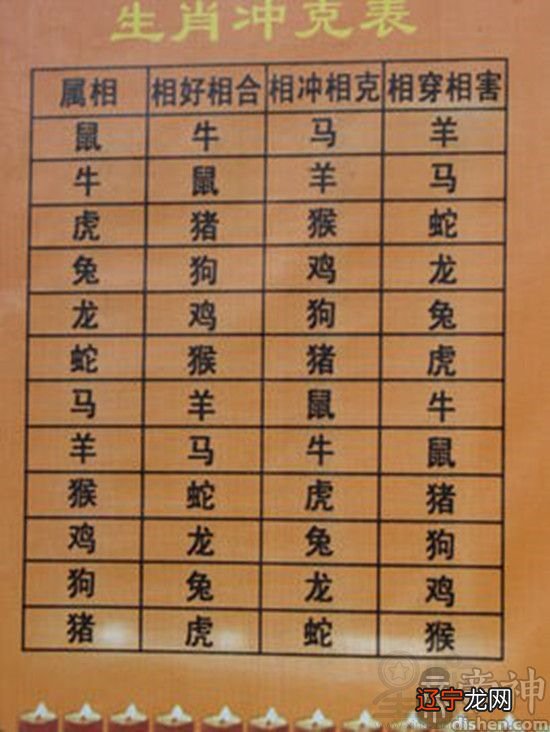 生肖冲克表
属相 相好相合 相冲相克 相穿相害
鼠 牛 马 羊
牛 鼠 羊 马
虎 猪 猴 蛇
兔 狗 鸡 龙
龙 鸡 狗 兔
蛇 猴 猪 虎
马 羊 鼠 牛
羊 马 牛 鼠
猴 蛇 虎 猪
鸡 龙 兔 狗
狗 兔 龙 鸡
猪 虎 蛇 猴
帝神
辽宁龙网
dishen.com